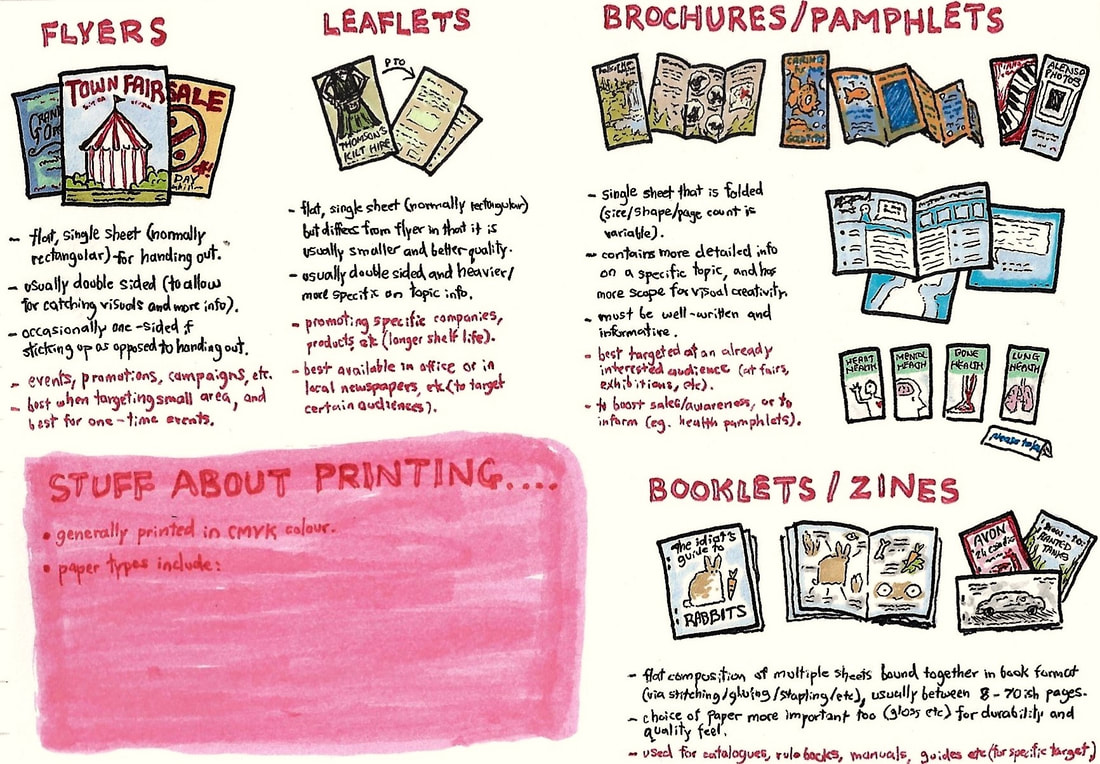 FLYERS
TOWN FAIR
SALE
DAY
- flat, single sheet (normally
rectangular) - for handing out.
- usually double sided (to allow
for catching visuals and more info).
- occasionally one-sided if
sticking up as opposed to handing out.
- events, promotions, campaigns, etc.
- best when targeting small area, and
best for one-time events.
LEAFLETS
PTO
THOMSON'S
KILT HIRE
- flat, single sheet (normally rectangular)
but differs from flyer in that it is
usually smaller and better-quality.
- usually double sided and heavier/
more specific on topic info.
- promoting specific companies,
products, etc (longer shelf life).
- best available in office or in
local newspapers, etc (to target
certain audiences).
BROCHURES/PAMPHLETS
ALENSO
PHOTOS
- single sheet that is folded
(size/shape/page count is
variable).
- contains more detailed info
on a specific topic, and has
more scope for visual creativity.
- must be well-written and
informative.
- best targeted at an already
interested audience (at fairs,
exhibitions, etc).
- to boost sales/awareness, or to
inform (eg. health pamphlets).
HEART
HEALTH
MENTAL
HEALTH
BONE
HEALTH
LUNG
HEALTH
STUFF ABOUT PRINTING....
• generally printed in CMYK colour.
• paper types include:
BOOKLETS / ZINES
The idiot's
guide to
RABBITS
AVON
- flat composition of multiple sheets bound together in book format
(via stitching/gluing/stapling/etc), usually between 8 - 70ish pages.
- choice of paper more important too (gloss etc) for durability and
quality feel.
- used for catalogues, rulebooks, manuals, guides etc (for specific target,)